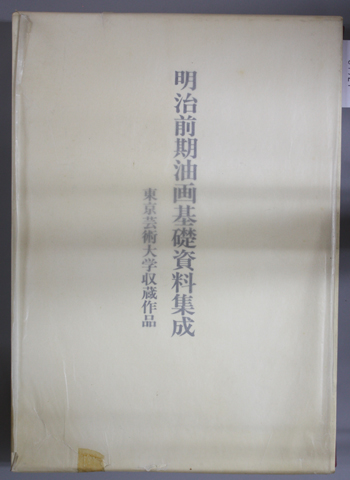 明治前期油画基礎資料集成
東京芸術大学収蔵作品